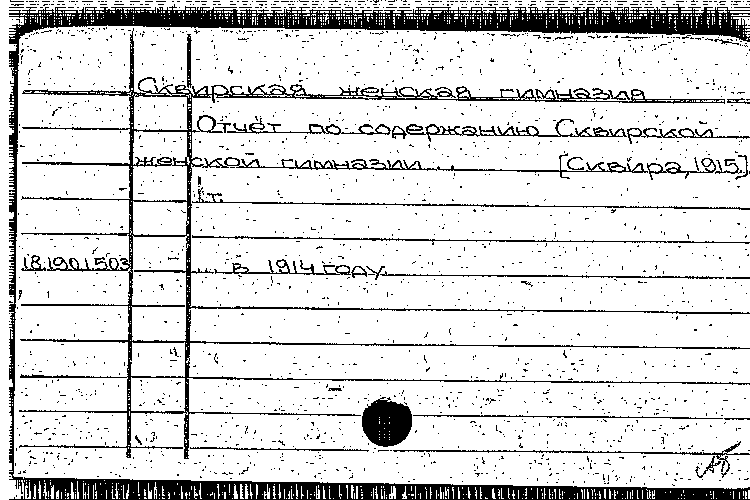 Сквирская женская гимназия
Отчёт по содержанию Сквирской
женской гимназии... [Сквира, 1915.]
1т.
18.190.1503 ... в 1914 году.